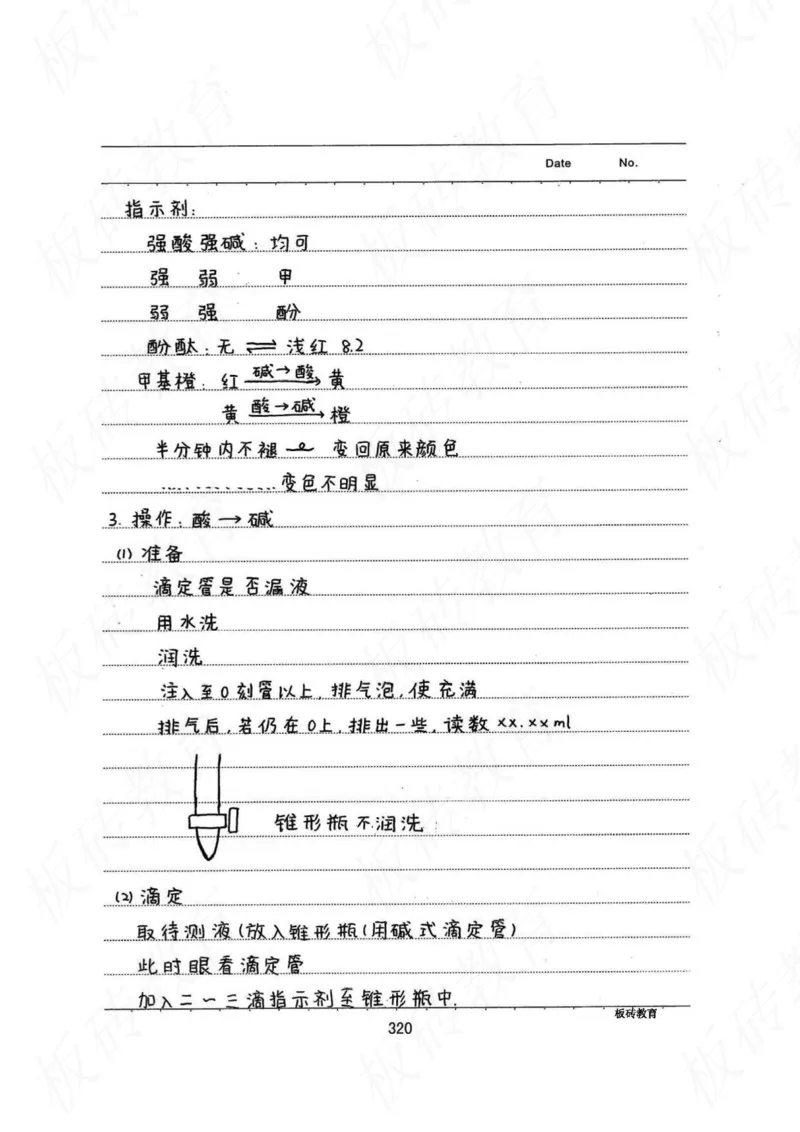 Date No.
指示剂:
强酸强碱: 均可
强 弱 甲
弱 强 酚
酚酞: 无 ⇌ 浅红 8.2
甲基橙: 红 碱→酸 黄
黄 酸→碱 橙
半分钟内不褪 变回原来颜色
.............变色不明显
3. 操作: 酸 → 碱
(1) 准备
滴定管是否漏液
用水洗
润洗
注入至0刻管以上, 排气泡, 使充满
排气后, 若仍在0上, 排出一些, 读数 xx.xx ml
锥形瓶不润洗
(2) 滴定
取待测液(放入锥形瓶(用碱式滴定管)
此时眼看滴定管
加入二~三滴指示剂至锥形瓶中.
板砖教育
320